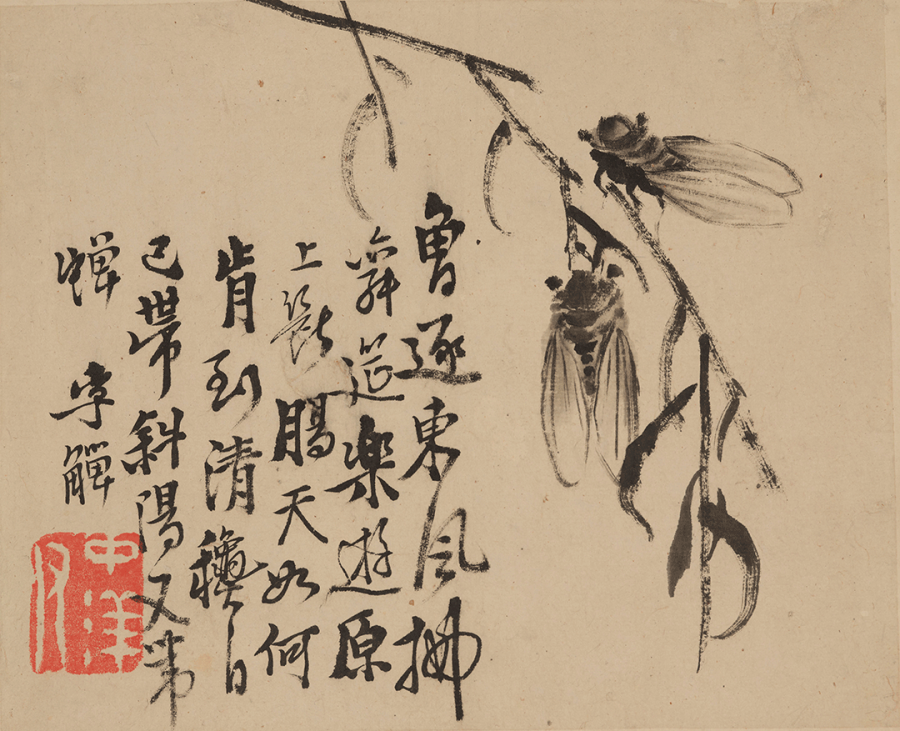 曾逐東風拂
舞筵樂遊原
上斷腸天如何
肯到清穐日
已帶斜陽又帶
蟬 李觶
中洋